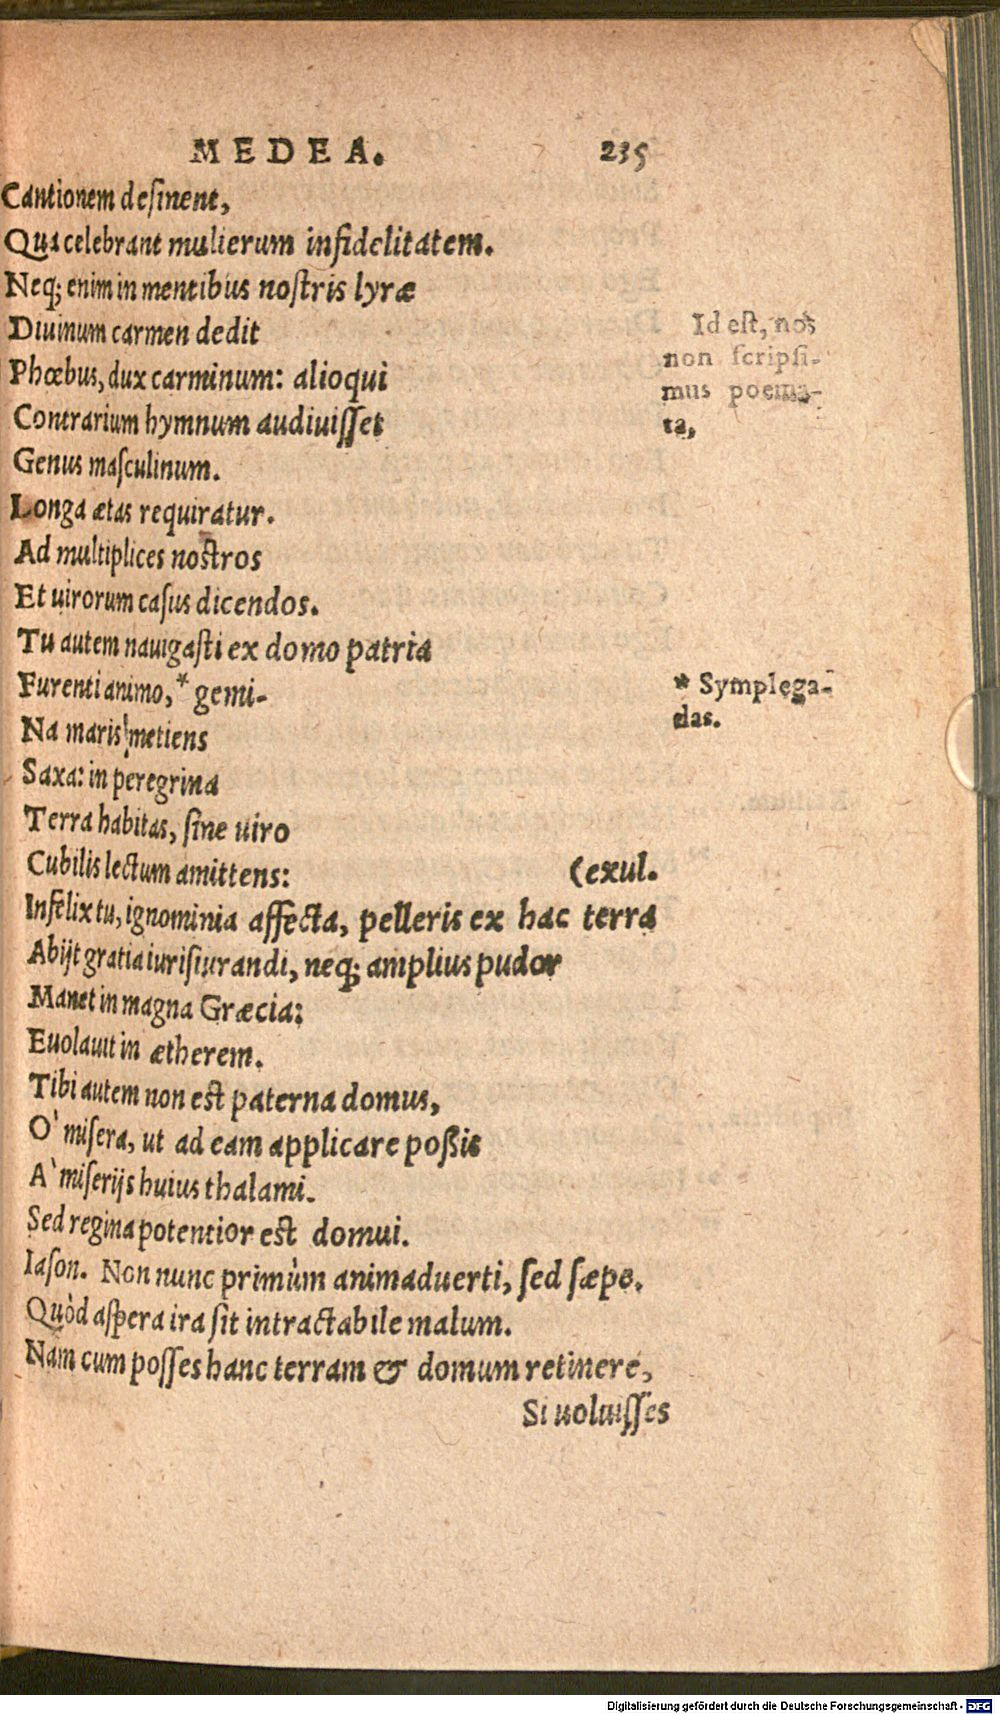 MEDEA. 235
Cantionem desinent,
Qua celebrant mulierum infidelitatem.
Neq; enim in mentibus nostris lyræ
Diuinum carmen dedit
Phœbus, dux carminum: alioqui
Contrarium hymnum audiuisset
Genus masculinum.
Longa ætas requiratur.
Ad multiplices nostros
Et uirorum casus dicendos.
Tu autem nauigasti ex domo patria
Furenti animo,* gemi-
Na maris metiens
Saxa: in peregrina
Terra habitas, sine uiro
Cubilis lectum amittens: (exul.
Infelix tu, ignominia affecta, pelleris ex hac terra
Abijt gratia iurisiurandi, neq; amplius pudor
Manet in magna Græcia:
Euolauit in ætherem.
Tibi autem non est paterna domus,
O' misera, ut ad eam applicare poßis
A' miserijs huius thalami.
Sed regina potentior est domui.
Iason. Non nunc primùm animaduerti, sed sæpe,
Quòd aspera ira sit intractabile malum.
Nam cum posses hanc terram & domum retinere,
Si uoluisses
Id est, nos
non scripsi-
mus poema-
ta,
* Symplega-
das.
Digitalisierung gefördert durch die Deutsche Forschungsgemeinschaft - DFG